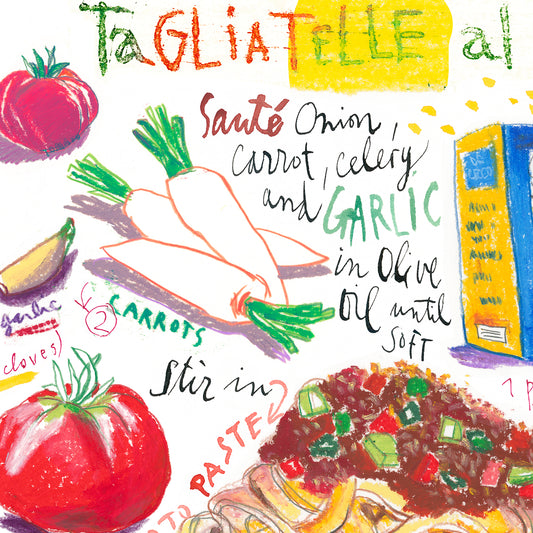 TAGLIATELLE al
Sauté Onion,
carrot, celery
and GARLIC
in Olive
Oil until
SOFT
garlic
cloves)
2
CARROTS
Stir in
PASTE
1 p